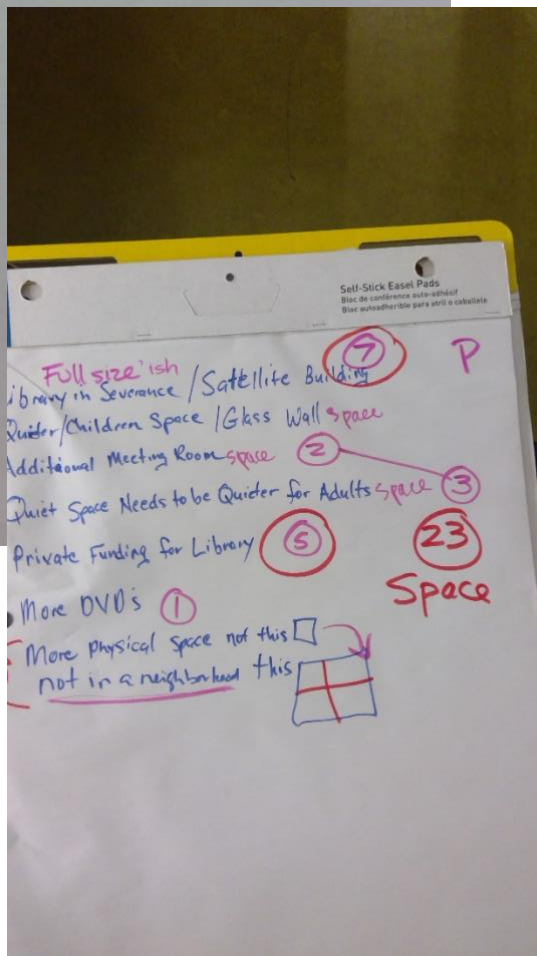 Self-Stick Easel Pads
Bloc de conférence auto-adhésif
Bloc autoadherible para atril o caballete
Full size'ish 7 P
ibrary in Severance / Satellite Building
Quieter/Children Space / Glass Wall space
Additional Meeting Room space 2
Quiet Space Needs to be Quieter for Adults space 3
Private Funding for Library 5 23
Space
More DVD's 1
More physical space not this
not in a neighborhood this